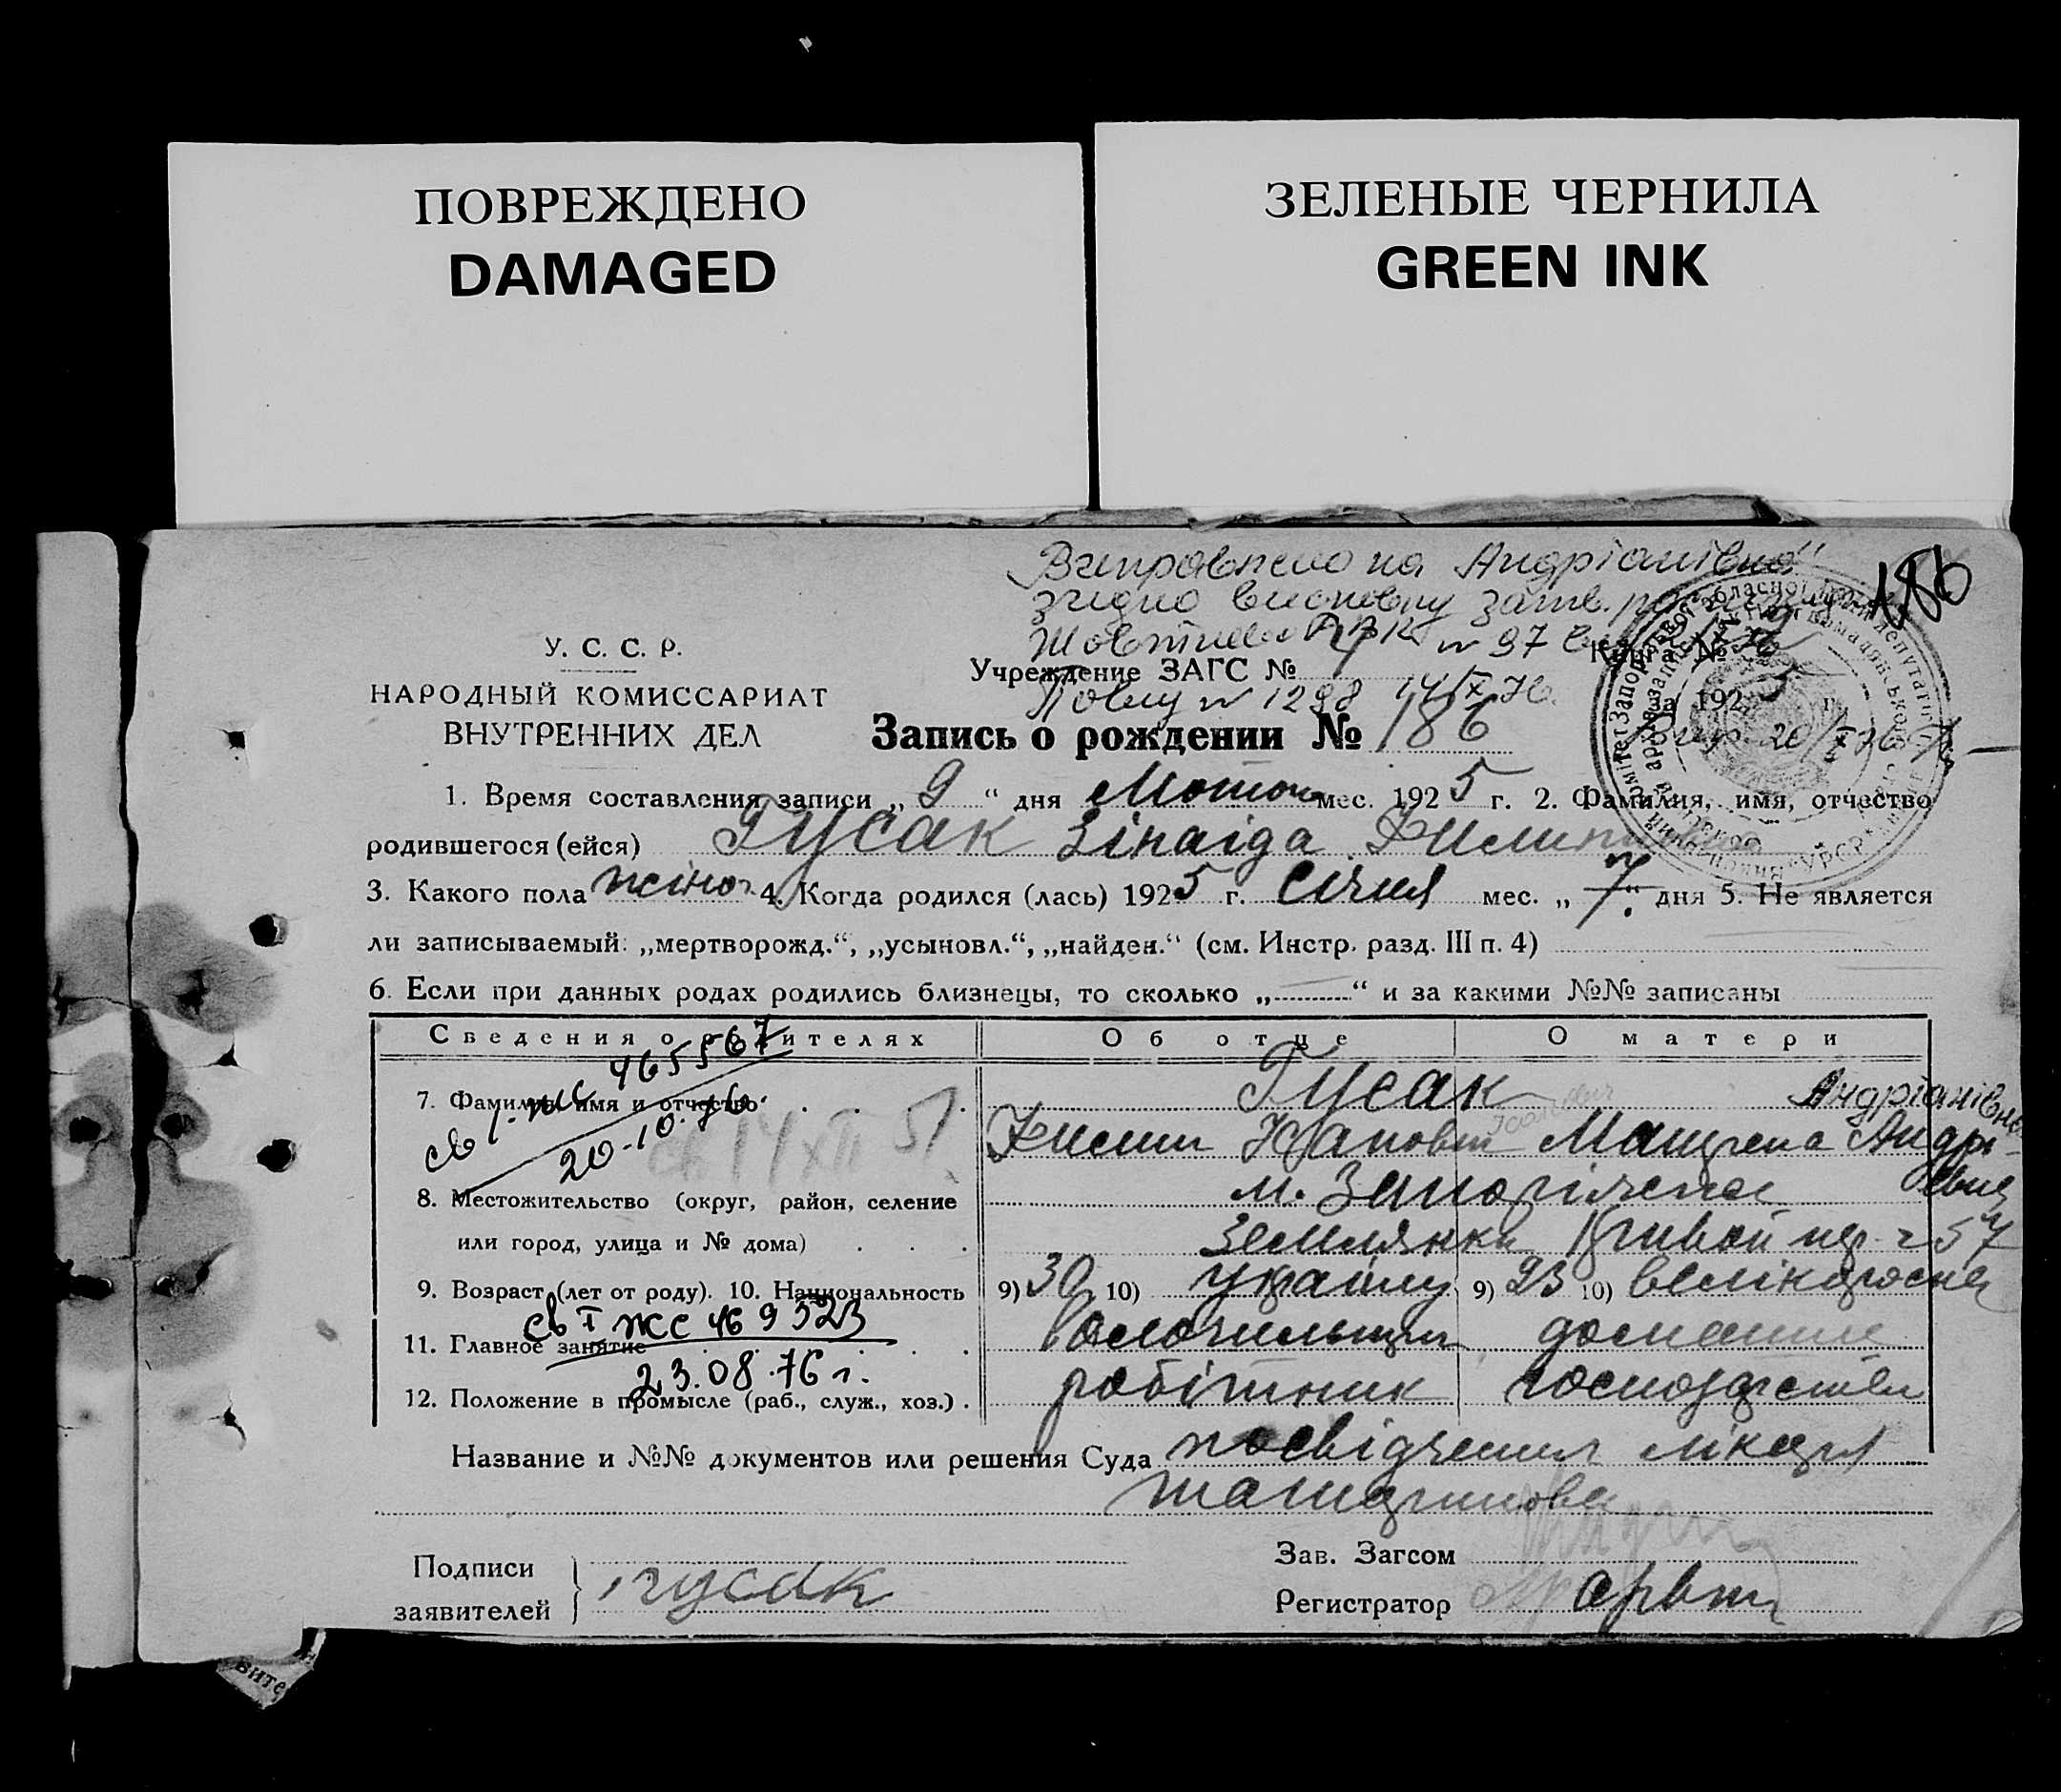 ПОВРЕЖДЕНО
DAMAGED
ЗЕЛЕНЫЕ ЧЕРНИЛА
GREEN INK
Виправлено на Андріанівна"
згідно висновку затв.
№ 97
186
У. С. С. Р.
НАРОДНЫЙ КОМИССАРИАТ
ВНУТРЕННИХ ДЕЛ
Учреждение ЗАГС №
Книга №
№ 1298 14/X 76.
за 1925 г.
Запись о рождении № 186
20/X 76
1. Время составления записи „ 9 “ дня Лютого мес. 1925 г. 2. Фамилия, имя, отчество
родившегося (ейся) Гусак Зінаіда Филиповна
3. Какого пола жіноч 4. Когда родился (лась) 1925 г. Січня мес. „ 7 “ дня 5. Не является
ли записываемый: „мертворожд.“, „усыновл.“, „найден.“ (см. Инстр. разд. III п. 4)
6. Если при данных родах родились близнецы, то сколько „ “ и за какими №№ записаны
Сведения о родителях Об отце О матери
7. Фамилия, имя и отчество Гусак
Андріанівна
св I-жс 465567
20-10.76.
св 14 XII 51
Филип
8. Местожительство (округ, район, селение м. Запоріжжа
или город, улица и № дома) Землянки Кривой пер. 57
9. Возраст (лет от роду). 10. Национальность 9) 30 10) Украінец 9) 23 10) великороска
св I жс 469323
11. Главное занятие домашне
23.08.76 г.
12. Положение в промысле (раб., служ., хоз.) робітник господарство
Название и №№ документов или решения Суда посвідчення лікаря
Подписи
заявителей
Гусак
Зав. Загсом
Регистратор
вите